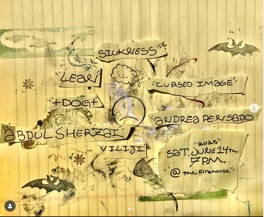 SICKNESS
"LEAR"
"CURSED IMAGE"
+DOG+
ABDUL SHERZAI
ANDREA PENSADO
VILIJI
"2025"
SAT. JUNE 14th
7 PM.
@ the Firehouse